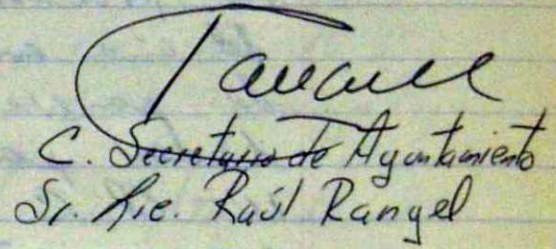 C. Secretario de Ayuntamiento
Sr. Lic. Raúl Rangel